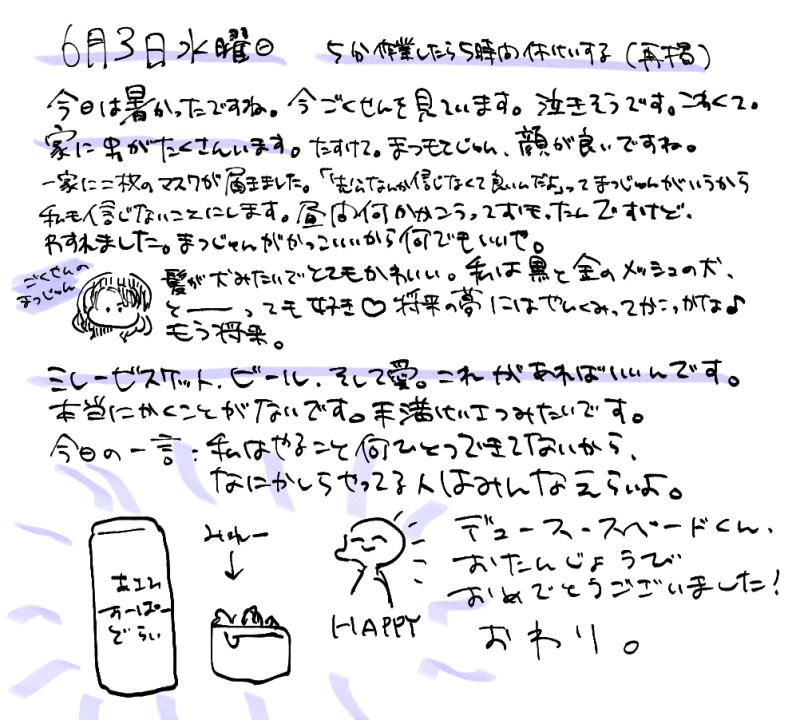 6月3日水曜日 5分作業したら5時間休けいする(再掲)
今日は暑かったですね。今ごくせんを見ています。泣きそうです。こわくて。
家に虫がたくさんいます。たすけて。まつもとじゅん、顔が良いですね。
一家に二枚のマスクが届きました。「先公なんか信じなくて良いんだよ」ってまつじゅんがいうから
私も信じないことにします。昼間何かかこうっておもったんですけど、
わすれました。まつじゅんがかっこいいから何でもいいや。
ごくせんの
まつじゅん
髪が犬みたいでとてもかわいい。私は黒と金のメッシュの犬、
と——っても好き♡ 将来の夢にはやんくみってかこっかな♪
もう将来。
ミレービスケット、ビール、そして愛。これがあればいいんです。
本当にかくことがないです。未満けいさつみたいです。
今日の一言:私はやること何ひとつできてないから、
なにかしらやってる人はみんなえらいよ。
みれー
↓
あさひ
すーぱー
どらい
HAPPY
デュース・スペードくん、
おたんじょうび
おめでとうございました!
おわり。